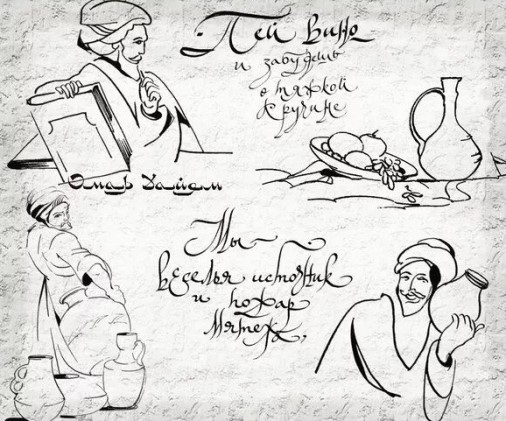 Пей вино
и забудешь
о тяжкой
кручине
Омар Хайям
Мы -
веселья источник
и пожар
мятежа,